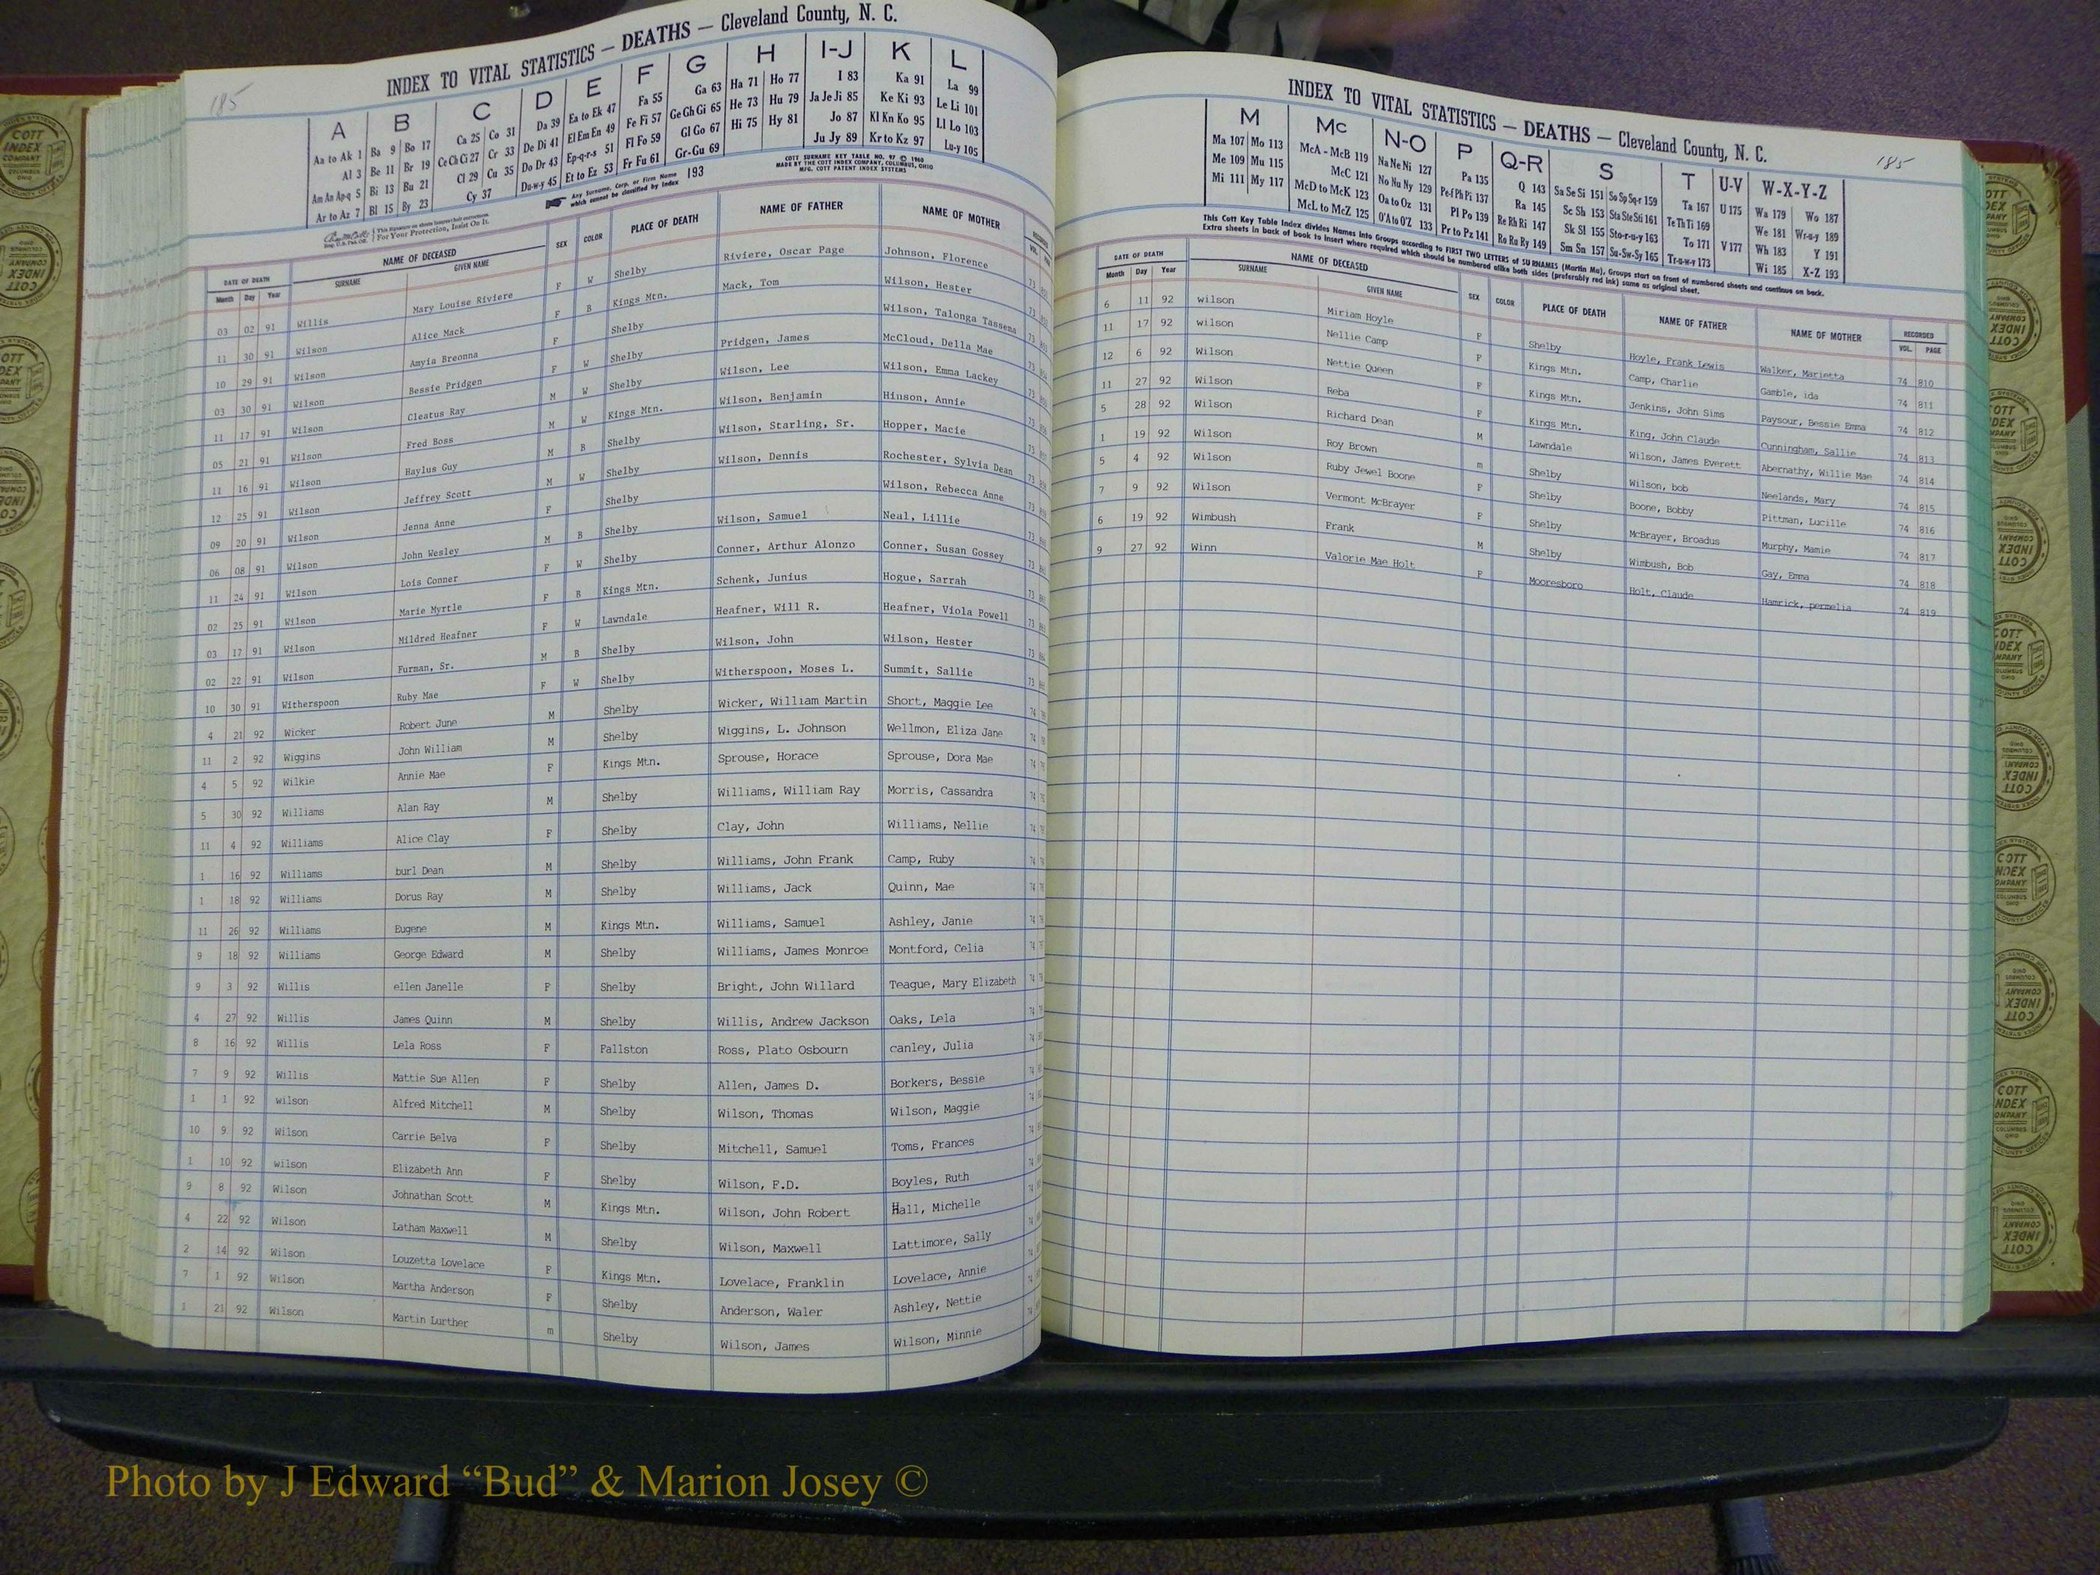 185
INDEX TO VITAL STATISTICS — DEATHS — Cleveland County, N. C.
A B C D E F G H I-J K L
Aa to Ak 1 Ba 9 Bo 17 Ca 25 Co 31 Da 39 Ea to Ek 47 Fa 55 Ga 63 Ha 71 Ho 77 I 83 Ka 91 La 99
Al 3 Be 11 Br 19 Ce Ch Ci 27 Cr 33 De Di 41 El Em En 49 Fe Fi 57 Ge Gh Gi 65 He 73 Hu 79 Ja Je Ji 85 Ke Ki 93 Le Li 101
Am An Ap-q 5 Bi 13 Bu 21 Cl 29 Cu 35 Do Dr 43 Ep-q-r-s 51 Fl Fo 59 Gl Go 67 Hi 75 Hy 81 Jo 87 Kl Kn Ko 95 Ll Lo 103
Ar to Az 7 Bl 15 By 23 Cy 37 Du-w-y 45 Et to Ez 53 Fr Fu 61 Gr-Gu 69 Ju Jy 89 Kr to Kz 97 Lu-y 105
Any Surname, Corp. or Firm Name which cannot be classified by Index 193
COTT SURNAME KEY TABLE NO. 97 © 1960
MADE BY THE COTT INDEX COMPANY, COLUMBUS, OHIO
MFG. COTT PATENT INDEX SYSTEMS
For Your Protection, Insist On It.
DATE OF DEATH NAME OF DECEASED SEX COLOR PLACE OF DEATH NAME OF FATHER NAME OF MOTHER
Month Day Year SURNAME GIVEN NAME
03 02 91 Willis Mary Louise Riviere F W Shelby Riviere, Oscar Page Johnson, Florence 73
11 30 91 Wilson Alice Mack F B Kings Mtn. Mack, Tom Wilson, Hester 73
10 29 91 Wilson Amyia Breonna F Shelby Wilson, Talonga Tassema 73
03 30 91 Wilson Bessie Pridgen F W Shelby Pridgen, James McCloud, Della Mae 73
11 17 91 Wilson Cleatus Ray M W Shelby Wilson, Lee Wilson, Emma Lackey 73
05 21 91 Wilson Fred Boss M W Kings Mtn. Wilson, Benjamin Hinson, Annie 73
11 16 91 Wilson Haylus Guy M B Shelby Wilson, Starling, Sr. Hopper, Macie 73
12 25 91 Wilson Jeffrey Scott M W Shelby Wilson, Dennis Rochester, Sylvia Dean 73
09 20 91 Wilson Jenna Anne F Shelby Wilson, Rebecca Anne 73
06 08 91 Wilson John Wesley M B Shelby Wilson, Samuel Neal, Lillie 73
11 24 91 Wilson Lois Conner F W Shelby Conner, Arthur Alonzo Conner, Susan Gossey 73
02 25 91 Wilson Marie Myrtle F B Kings Mtn. Schenk, Junius Hogue, Sarrah 73
03 17 91 Wilson Mildred Heafner F W Lawndale Heafner, Will R. Heafner, Viola Powell 73
02 22 91 Wilson Furman, Sr. M B Shelby Wilson, John Wilson, Hester 73
10 30 91 Witherspoon Ruby Mae F W Shelby Witherspoon, Moses L. Summit, Sallie 73
4 21 92 Wicker Robert June M Shelby Wicker, William Martin Short, Maggie Lee 74
11 2 92 Wiggins John William M Shelby Wiggins, L. Johnson Wellmon, Eliza Jane 74
4 5 92 Wilkie Annie Mae F Kings Mtn. Sprouse, Horace Sprouse, Dora Mae 74
5 30 92 Williams Alan Ray M Shelby Williams, William Ray Morris, Cassandra 74
11 4 92 Williams Alice Clay F Shelby Clay, John Williams, Nellie 74
1 16 92 Williams burl Dean M Shelby Williams, John Frank Camp, Ruby 74
1 18 92 Williams Dorus Ray M Shelby Williams, Jack Quinn, Mae 74
11 26 92 Williams Eugene M Kings Mtn. Williams, Samuel Ashley, Janie 74
9 18 92 Williams George Edward M Shelby Williams, James Monroe Montford, Celia 74
9 3 92 Willis ellen Janelle F Shelby Bright, John Willard Teague, Mary Elizabeth 74
4 27 92 Willis James Quinn M Shelby Willis, Andrew Jackson Oaks, Lela 74
8 16 92 Willis Lela Ross F Fallston Ross, Plato Osbourn canley, Julia 74
7 9 92 Willis Mattie Sue Allen F Shelby Allen, James D. Borkers, Bessie 74
1 1 92 wilson Alfred Mitchell M Shelby Wilson, Thomas Wilson, Maggie 74
10 9 92 Wilson Carrie Belva F Shelby Mitchell, Samuel Toms, Frances 74
1 10 92 wilson Elizabeth Ann F Shelby Wilson, F.D. Boyles, Ruth 74
9 8 92 Wilson Johnathan Scott M Kings Mtn. Wilson, John Robert Hall, Michelle 74
4 22 92 Wilson Latham Maxwell M Shelby Wilson, Maxwell Lattimore, Sally 74
2 14 92 Wilson Louzetta Lovelace F Kings Mtn. Lovelace, Franklin Lovelace, Annie 74
7 1 92 Wilson Martha Anderson F Shelby Anderson, Waler Ashley, Nettie 74
1 21 92 Wilson Martin Lurther m Shelby Wilson, James Wilson, Minnie 74
INDEX TO VITAL STATISTICS — DEATHS — Cleveland County, N. C.
185
M Mc N-O P Q-R S T U-V W-X-Y-Z
Ma 107 Mo 113 McA - McB 119 Na Ne Ni 127 Pa 135 Q 143 Sa Se Si 151 So Sp Sq-r 159 Ta 167 U 175 Wa 179 Wo 187
Me 109 Mu 115 McC 121 No Nu Ny 129 Pe-f Ph Pi 137 Ra 145 Sc Sh 153 Sta Ste Sti 161 Te Th Ti 169 We 181 Wr-u-y 189
Mi 111 My 117 McD to McK 123 Oa to Oz 131 Pl Po 139 Re Rh Ri 147 Sk Sl 155 Sto-r-u-y 163 To 171 V 177 Wh 183 Y 191
McL to McZ 125 O'A to O'Z 133 Pr to Pz 141 Ro Ru Ry 149 Sm Sn 157 Su-Sw-Sy 165 Tr-u-w-y 173 Wi 185 X-Z 193
This Cott Key Table Index divides Names into Groups according to FIRST TWO LETTERS of SURNAMES (Martin Ma), Groups start on front of numbered sheets and continue on back.
Extra sheets in back of book to insert where required which should be numbered alike both sides (preferably red ink) same as original sheet.
DATE OF DEATH NAME OF DECEASED SEX COLOR PLACE OF DEATH NAME OF FATHER NAME OF MOTHER RECORDED
Month Day Year SURNAME GIVEN NAME VOL. PAGE
6 11 92 wilson Miriam Hoyle F Shelby Hoyle, Frank Lewis Walker, Marietta 74 810
11 17 92 wilson Nellie Camp F Kings Mtn. Camp, Charlie Gamble, ida 74 811
12 6 92 Wilson Nettie Queen F Kings Mtn. Jenkins, John Sims Paysour, Bessie Emma 74 812
11 27 92 Wilson Reba F Kings Mtn. King, John Claude Cunningham, Sallie 74 813
5 28 92 Wilson Richard Dean M Lawndale Wilson, James Everett Abernathy, Willie Mae 74 814
1 19 92 Wilson Roy Brown m Shelby Wilson, bob Neelands, Mary 74 815
5 4 92 Wilson Ruby Jewel Boone F Shelby Boone, Bobby Pittman, Lucille 74 816
7 9 92 Wilson Vermont McBrayer F Shelby McBrayer, Broadus Murphy, Mamie 74 817
6 19 92 Wimbush Frank M Shelby Wimbush, Bob Gay, Emma 74 818
9 27 92 Winn Valorie Mae Holt F Mooresboro Holt, Claude Hamrick, permelia 74 819
COTT INDEX COMPANY COLUMBUS OHIO
Photo by J Edward “Bud” & Marion Josey ©